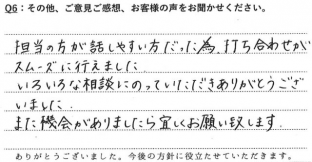 Q6：その他、ご意見ご感想、お客様の声をお聞かせください。
担当の方が話しやすい方だった為、打ち合わせが
スムーズに行えました
いろいろな相談にのっていただきありがとうござ
いました.
また機会がありましたら宜しくお願い致します.
ありがとうございました。今後の方針に役立たせていただきます。